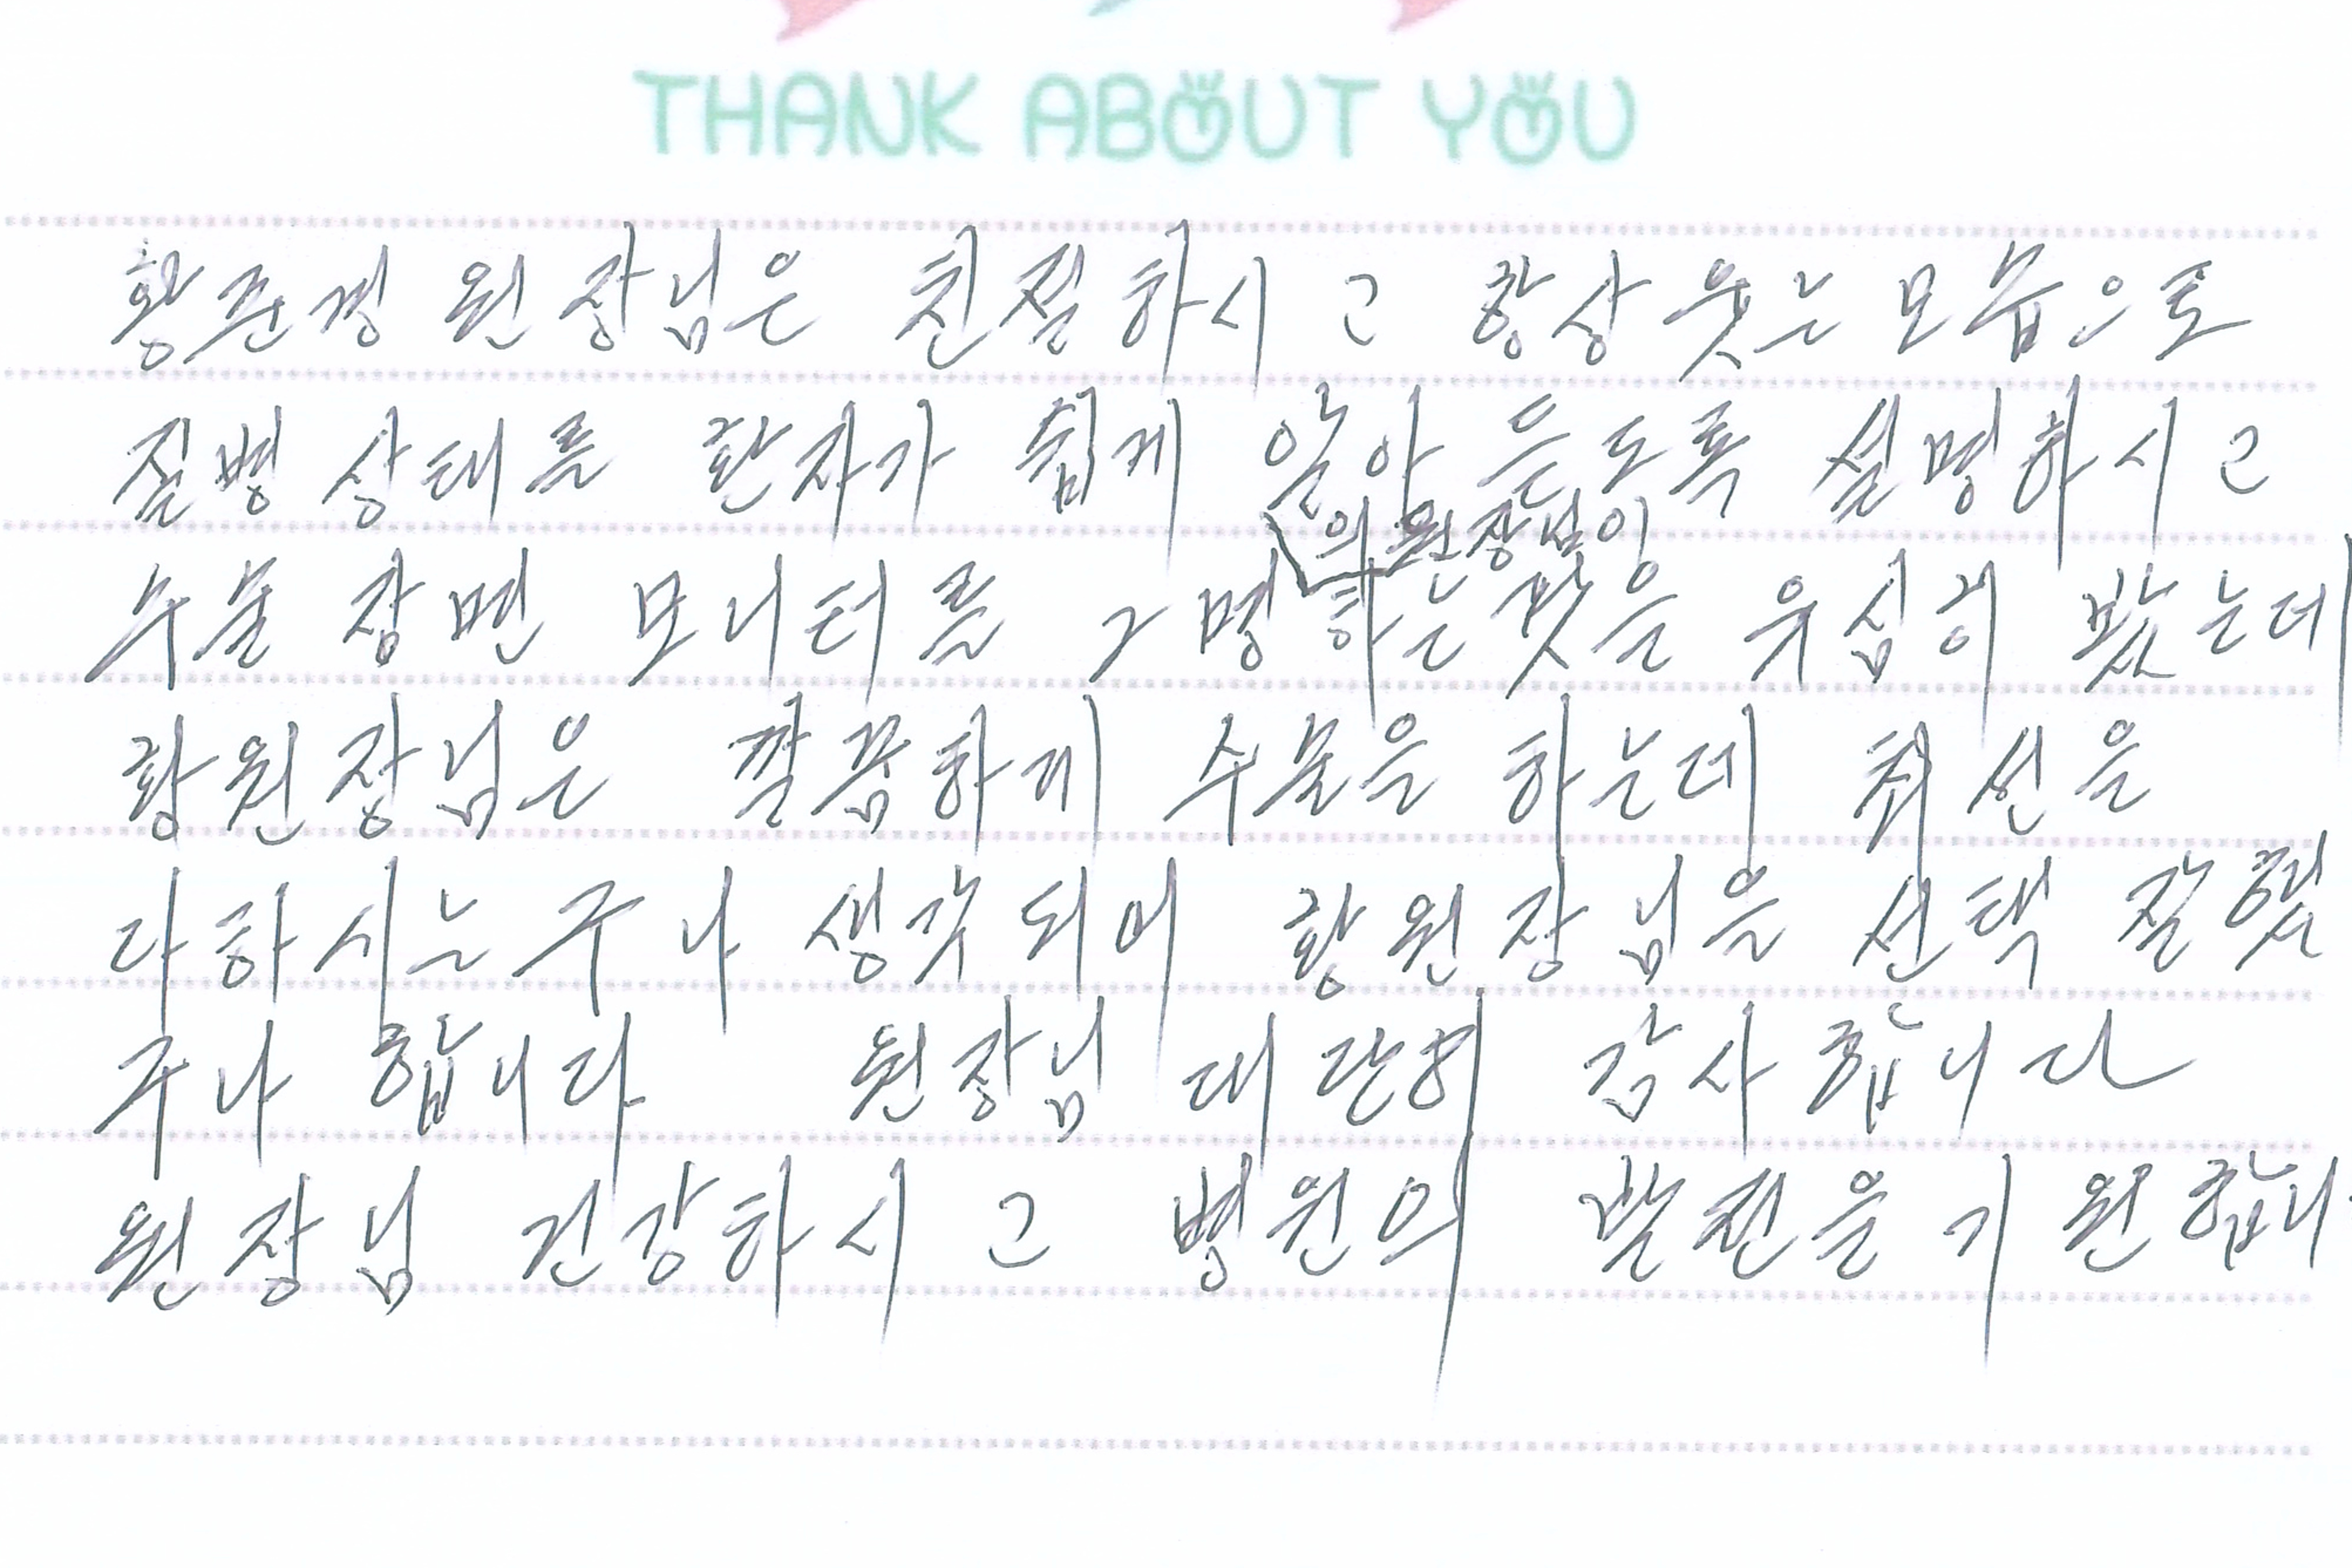 THANK ABOUT YOU
황준경 원장님은 친절하시고 항상 웃는 모습으로
질병 상태를 환자가 쉽게 알아 듣도록 설명하시고
의 원장님이
수술 장면 모니터를 2명 하는것을 유심히 봤는데
황원장님은 깔끔하게 수술을 하는데 최선을
다하시는구나 생각되어 황원장님을 선택 잘했
구나 합니다 원장님 대단히 감사합니다
원장님 건강하시고 병원의 발전을 기원합니